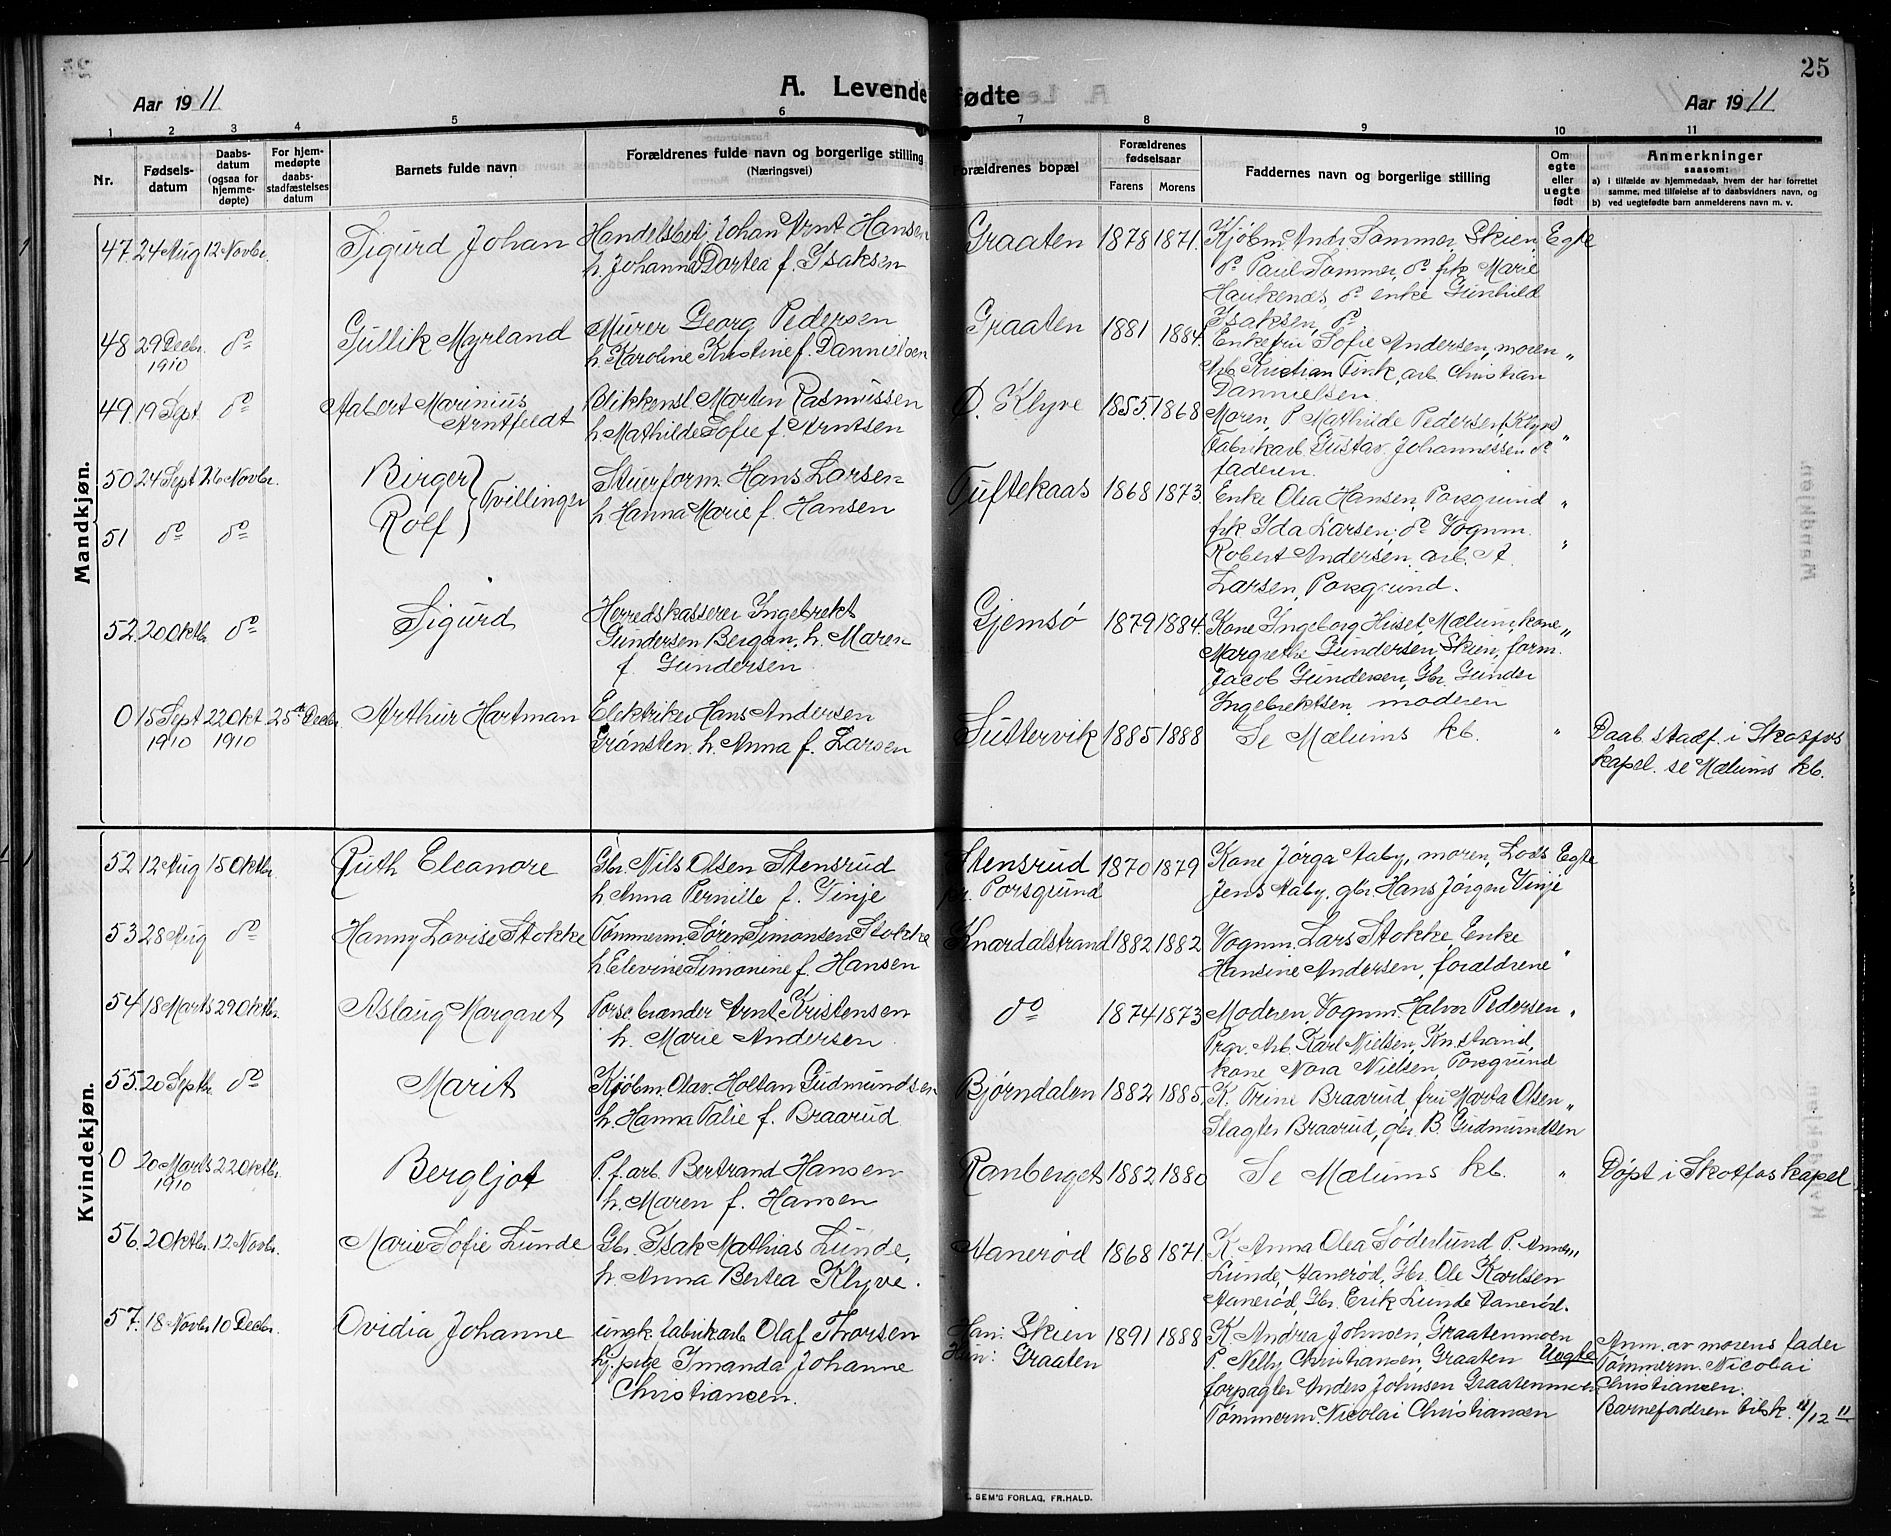 25
A. Levende fødte
Aar 1911
Aar 1911
1 2 3 4 5 6 7 8 9 10 11
Nr.
Fødselsdatum
Daabsdatum (ogsaa for hjemmedøpte)
For hjemmedøpte daabsstadfæstelses datum
Barnets fulde navn
Forældrenes fulde navn og borgerlige stilling
(Næringsvei)
Forældrenes bopæl
Forældrenes fødselsaar
Farens Morens
Faddernes navn og borgerlige stilling
Om egte eller uegte født
Anmerkninger
saasom:
a) i tilfælde av hjemmedaab, hvem der har forrettet samme, med tilføielse af to daabsvidners navn, og
b) ved uegtefødte barn anmelderens navn m. v.
Mandkjøn.
47 24 Aug 12 Novbr. Sigurd Johan
Handelsbetj. Johan Arnt Hansen
h. Johanna Dortea f. Isaksen
Graaten 1878 1871.
Kjøbm. Andr. Sommer, Skien,
do Paul Sommer, do frk Marie
Haukenæs do enke Gunhild
Isaksen, do
Egte
48 29 Decbr. 1910 do Gullik Myrland
Murer Georg Pedersen
h. Karoline Kristine f. Dannielsen
Graaten 1881 1884.
Enkefru Sofie Andersen, moren
Arb. Kristian Fink, arb. Christian
Dannielsen
"
49. 19 Sept. do Aabert Marinius
Arntfeldt
Blikkensl. Martin Rasmussen
h. Mathilde Sofie f. Arntsen
Ø. Klyve 1855. 1868
Moren, P. Mathilde Pedersen, (Klyve)
Fabrikarb. Gustav Johannessen do
faderen.
"
50 24 Sept 26 Novbr. Birger
51 do do Rolf
Tvillinger
Stuerform. Hans Larsen
h Hanna Marie f. Hansen
Tuftekaas 1868 1873.
Enke Olea Hansen, Porsgrund
frk Ida Larsen, do Vognm.
Robert Andersen, arb. A.
Larsen, Porsgrund.
"
"
52. 20 Oktbr. do Sigurd
Herredskasserer Ingebrekt
Gundersen Bergan, h. Maren
f. Gundersen
Gjemsø 1879 1884.
Kone Ingeborg Huset, Mælum, kone
Margrethe Gundersen, Skien, form.
Jacob Gundersen, Gbr. Gunder
Ingebrektsen, moderen
"
0 15 Sept 1910 22 Okt. 1910 25de Decbr. Arthur Hartman
Elektriker Hans Andersen
Grønsten h. Anna f. Larsen
Suttervik 1885 1888
Se Mælums kb.
"
Daab. stadf. i Skotfos
kapel. se Mælums kb.
Kvindekjøn.
52 12 Aug 15 Oktbr. Ruth Eleanore
Gbr. Nils Olsen Stensrud
h Anna Pernille f. Vinje
Stensrud
pr. Porsgrund
1870 1879
Kone Jørga Aaby, moren, Lods
Jens Aaby, gbr. Hans Jørgen Vinje
Egte
53. 28 Aug do Hanny Lovise Stokke
Tømmerm. Søren Simonsen Stokke
h. Elevine Simonine f. Hansen
Knardalstrand 1882 1882
Vognm. Lars Stokke, Enke
Hansine Andersen, forældrene
"
54 18 Marts 29 Oktbr. Aslaug Margaret
Porse brænder Arnt Kristensen
h. Marie Andersen
do 1874 1873
Moderen, Vognm. Halvor Pedersen
Prgr. Arb. Karl Nielsen, Kn.strand,
kone Nora Nielsen, Porsgrund
"
55. 20 Septbr. do Marit
Kjøbm. Olav Holtan Gudmundsen
h. Hanna Talie f. Braarud
Bjørndalen 1882 1885.
K. Trine Braarud, fru Marta Olsen
Slagter Braarud, gbr. B. Gudmundsen
"
0 20 Marts 1910 22 Oktbr. Bergljot
P.f. arb. Bertrand Hansen
h. Maren f. Hansen
Ranberget 1882 1880
Se Mælums kb.
"
Døpt i Skotfos kapel
56. 2 Oktbr. 12 Novbr. Marie Sofie Lunde
Gbr. Isak Mathias Lunde,
h. Anna Bertea Klyve.
Aanerød 1868 1871.
K. Anna Olea Søderlund, P. Anna
Lunde, Aanerød, Gbr. Ole Karlsen
Aanerød, Gbr. Erik Lunde Aanerød.
"
57. 18 Novbr 10 Decbr. Ovidia Johanne
ungk. fabrikarb Olaf Thorsen
hj. pige Imanda Johanne
Christiansen.
Han: Skien
Hun: Graaten
1891 1888
K. Andrea Johnsen, Graatenmoen
P. Nelly Christiansen, Graaten
forpagter Anders Johnsen Graatenmoen
Tømmerm. Nicolai Christiansen
Uegte
Anm. av morens fader
Tømmerm. Nicolai
Christiansen.
Barnefaderen tilsk. 11/12 11
E. SEM'S FORLAG, FR.HALD.